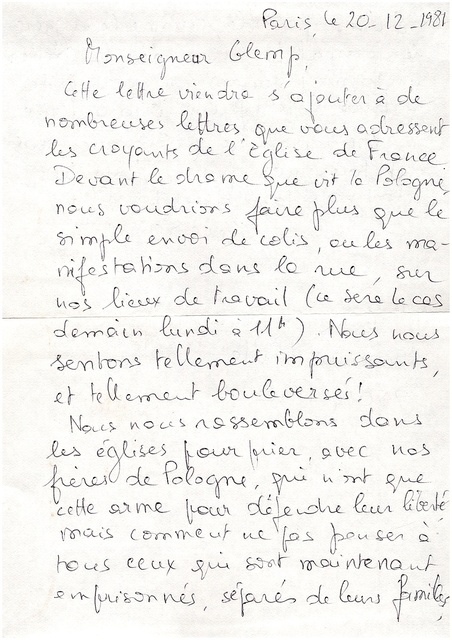 Paris, le 20-12-1981
Monseigneur Glemp,
Cette lettre viendra s'ajouter à de
nombreuses lettres que vous adressent
les croyants de l'Église de France
Devant le drame que vit la Pologne,
nous voudrions faire plus que le
simple envoi de colis, ou les ma-
nifestations dans la rue, sur
nos lieux de travail (ce sera le cas
demain lundi à 11h). Nous nous
sentons tellement impuissants,
et tellement bouleversés!
Nous nous rassemblons dans
les églises pour prier, avec nos
frères de Pologne, qui n'ont que
cette arme pour défendre leur liberté
mais comment ne pas penser à
tous ceux qui sont maintenant
emprisonnés, séparés de leurs familles,